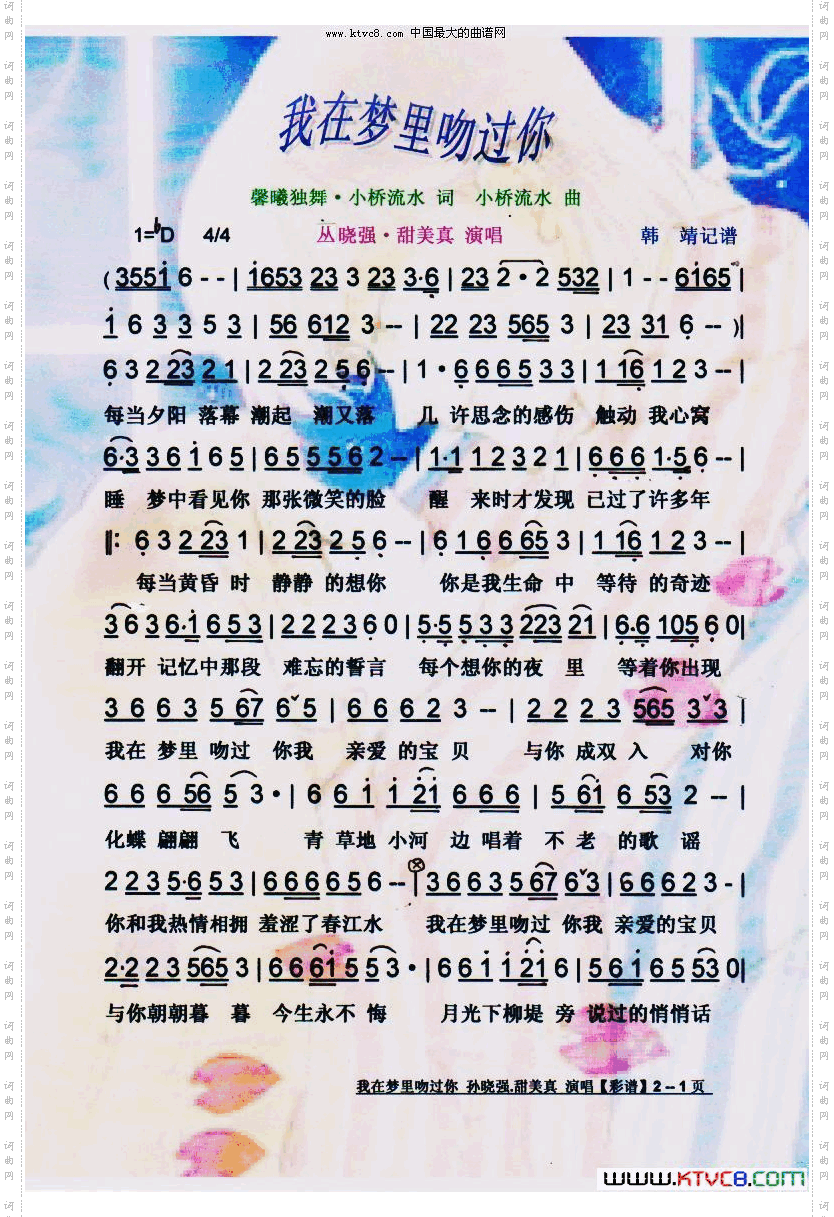 www.ktvc8.com 中国最大的曲谱网
我在梦里吻过你
馨曦独舞·小桥流水 词 小桥流水 曲
1=♭D 4/4 丛晓强·甜美真 演唱 韩 靖记谱
(3551 6 - - | 1653 23 3 23 3·6 | 23 2·2 532 | 1 - - 6165 |
1 6 3 3 5 3 | 56 612 3 -- | 22 23 565 3 | 23 31 6 -- )|
6 3 2 23 2 1 | 2 23 2 5 6 -- | 1·6 6 6 5 3 3 | 1 16 1 2 3 -- |
每当夕阳 落幕 潮起 潮又落 几 许思念的感伤 触动 我心窝
6·3 3 6 1 6 5 | 6 5 5 5 6 2 -- | 1·1 1 2 3 2 1 | 6 6 6 1·5 6 -- |
睡 梦中看见你 那张微笑的脸 醒 来时才发现 已过了许多年
‖: 6 3 2 23 1 | 2 23 2 5 6 -- | 6 1 6 6 65 3 | 1 16 1 2 3 -- |
每当黄昏 时 静静 的想你 你是我生命 中 等待 的奇迹
3 6 3 6·1 6 5 3 | 2 2 2 3 6 0 | 5·5 5 3 3 223 21 | 6·6 105 6 0 |
翻开 记忆中那段 难忘的誓言 每个想你的夜 里 等着你出现
3 6 6 3 5 67 6ˇ5 | 6 6 6 2 3 -- | 2 2 2 3 565 3ˇ3 |
我在 梦里 吻过 你我 亲爱 的宝 贝 与你 成双 入 对你
6 6 6 56 5 3· | 6 6 1 1 21 6 6 6 | 5 61 6 53 2 -- |
化蝶 翩翩 飞 青 草地 小河 边 唱着 不 老 的歌 谣
2 2 3 5·6 5 3 | 6 6 6 6 5 6 -- | 3 6 6 3 5 67 6ˇ3 | 6 6 6 2 3 - |
你和我热情相拥 羞涩了春江水 我在梦里吻过 你我 亲爱的宝贝
2·2 2 3 565 3 | 6 6 61 5 5 3· | 6 6 1 1 21 6 | 5 6 1 6 5 53 0 |
与你朝朝暮 暮 今生永不 悔 月光下柳堤 旁 说过的悄悄话
我在梦里吻过你 孙晓强.甜美真 演唱【彩谱】2--1页
www.KTVC8.com